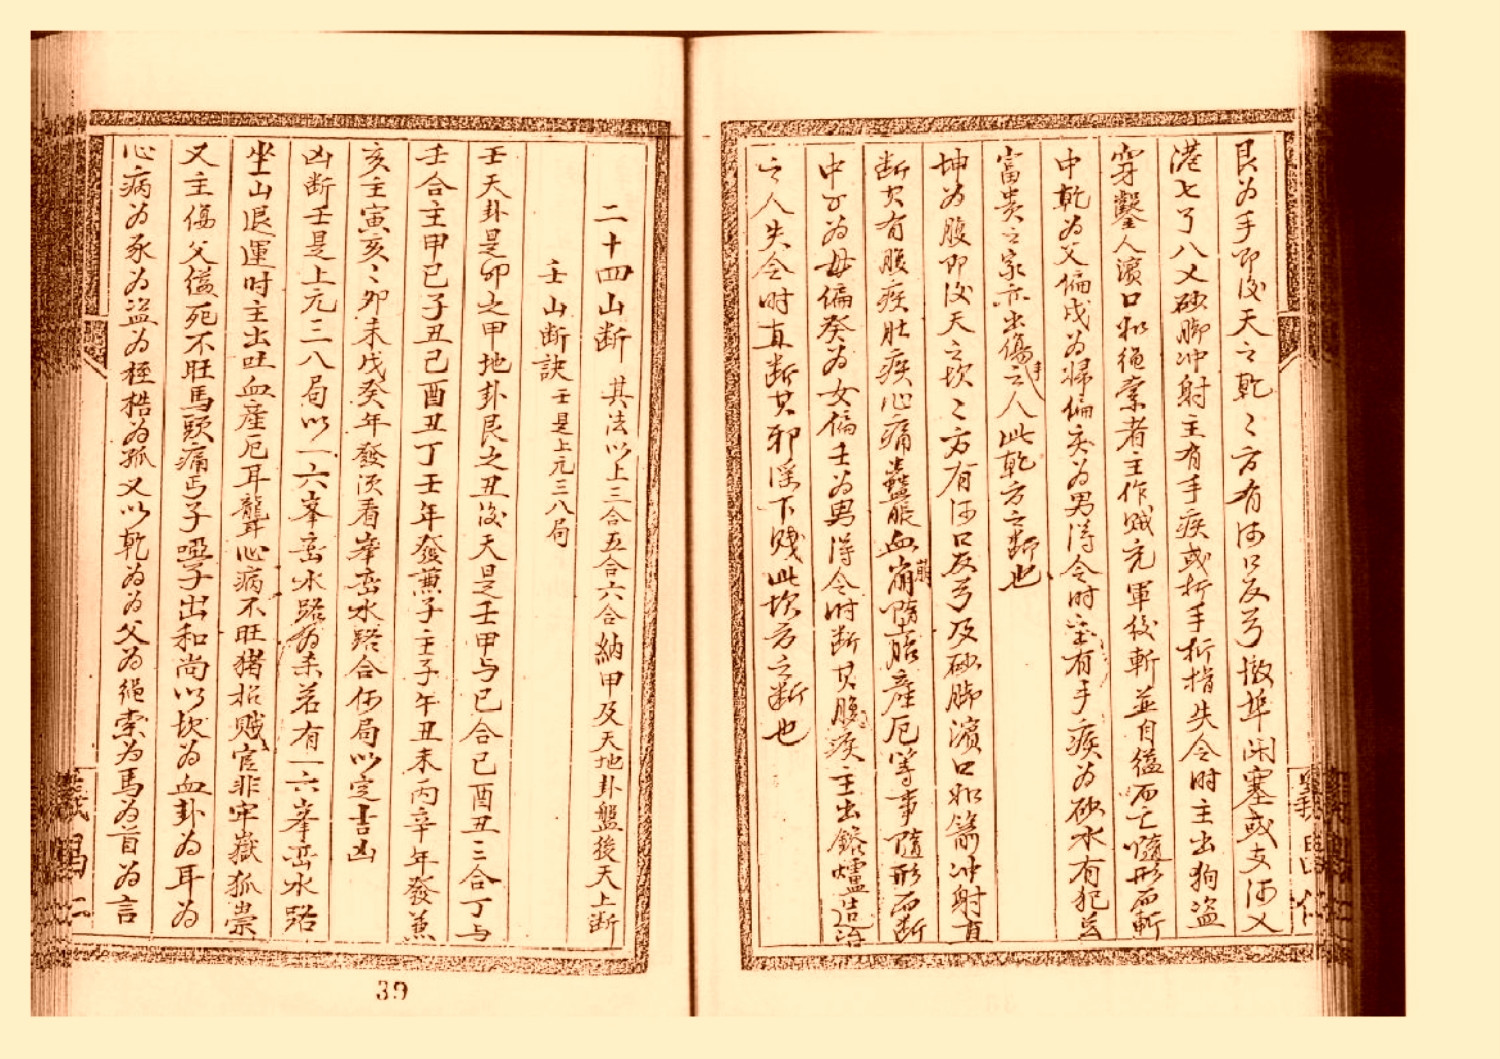 艮为手即後天之乾乾方有河口反弓撤埠闭塞或支河又
港七了八义砂脚冲射主有手疾或折手折指失令时主出狗盗
穿鑿人濱口如绳索者主作贼充軍後斬並自缢而亡随形而斬
中乾为父偏戌为婦偏亥为男得令时宝有手疾为砂水有犯
富贵之家亦出傷手之人此乾方之断也
坤为腹即後天之坎坎方有河口反弓及砂脚濱口如箭冲射直
断其有腹疾肚疾心痛蠱脹血崩墮胎產厄等事隨形而断
中子为母偏癸为女偏壬为男得令时断其腹疾主出鎔爐造冶
之人失令时直断其邪淫下贱此坎方之断也
二十四山断 其法以上三合五合六合納甲及天地卦盤後天上断
壬山断訣 壬是上元三八局
壬天卦是卯之甲地卦艮之丑後天是壬甲与已合已酉丑三合丁与
壬合主甲已子丑已酉丑丁壬年發薫子主子午丑未丙辛年發薫
亥主寅亥亥卯未戌癸年發須看峯峦水路合何局以定吉凶
凶断壬是上元三八局以一六峯峦水路为杀若有一六峯峦水路
坐山退運时主出吐血產厄耳聾心病不旺猪招贼官非牢嶽狐祟
又主傷父缢死不旺馬頭痛丐子啞子出和尚以坎为血卦为耳为
心病为豕为盜为桎梏为孤又以乾为为父为绳索为馬为首为言
39